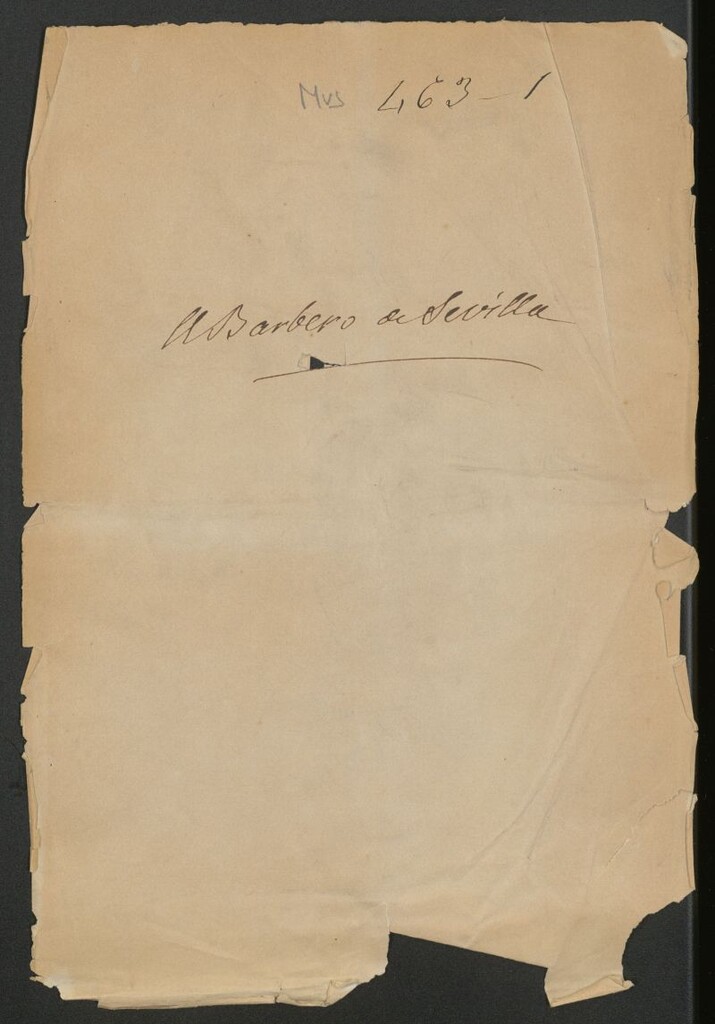 Mus 463-1
El Barbero de Sevilla